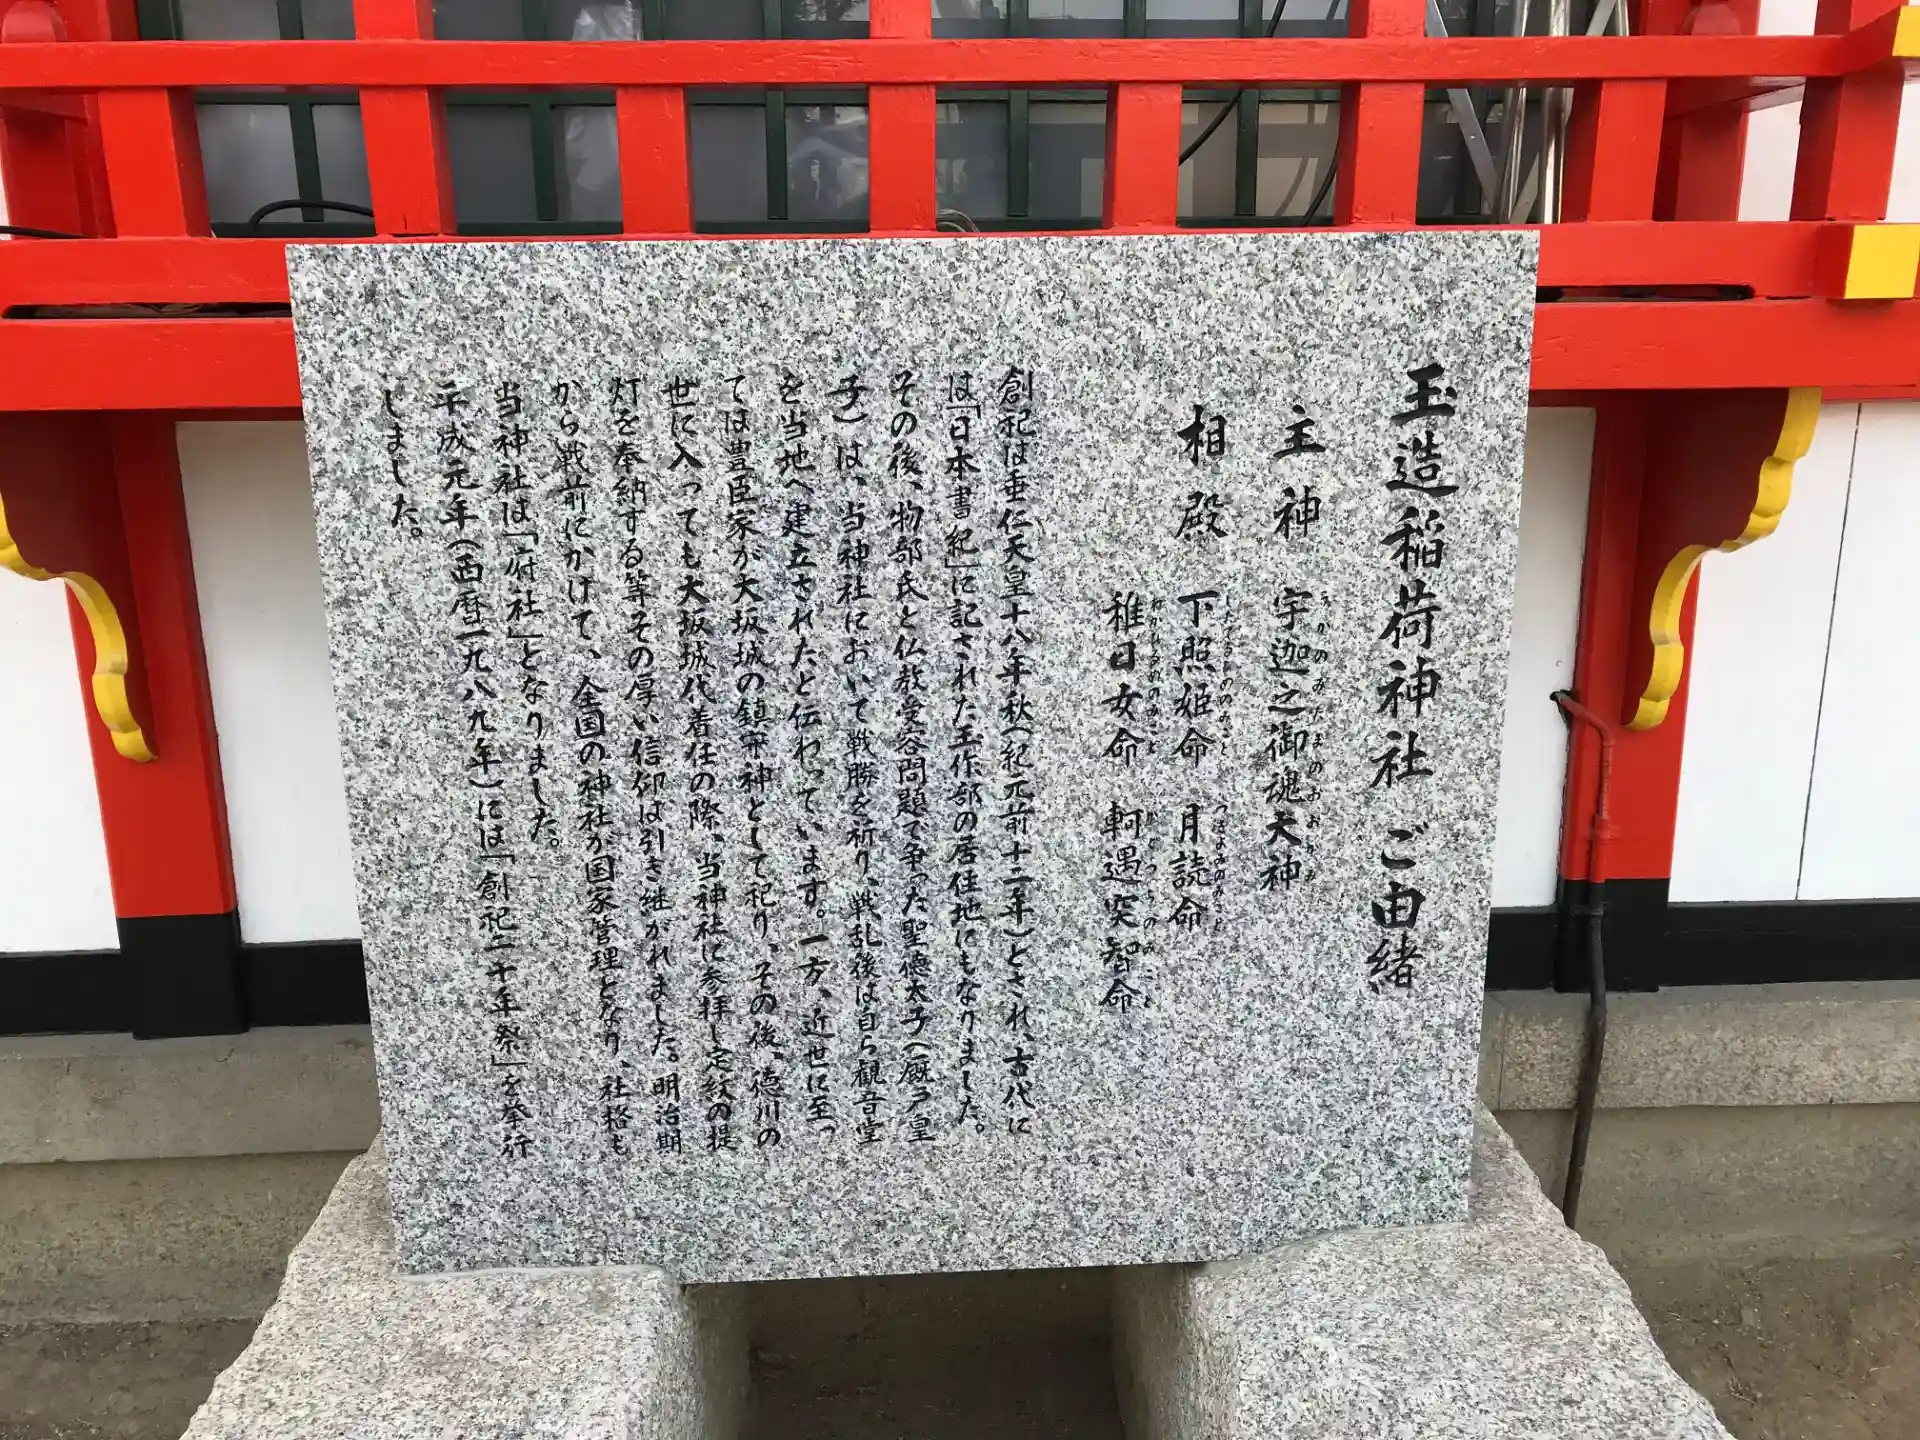 玉造稲荷神社 ご由緒
主神 宇迦之御魂大神
相殿 下照姫命 月読命
稚日女命 軻遇突智命
創祀は垂仁天皇十八年秋(紀元前十二年)とされ、古代に
は「日本書紀」に記された玉作部の居住地にもなりました。
その後、物部氏と仏教受容問題で争った聖徳太子(厩戸皇
子)は、当神社において戦勝を祈り、戦乱後は自ら観音堂
を当地へ建立されたと伝わっています。一方、近世に至っ
ては豊臣家が大坂城の鎮守神として祀り、その後、徳川の
世に入っても大坂城代着任の際、当神社に参拝し定紋の提
灯を奉納する等その厚い信仰は引き継がれました。明治期
から戦前にかけて、全国の神社が国家管理となり、社格も
当神社は「府社」となりました。
平成元年(西暦一九八九年)には「創祀二千年祭」を挙行
しました。